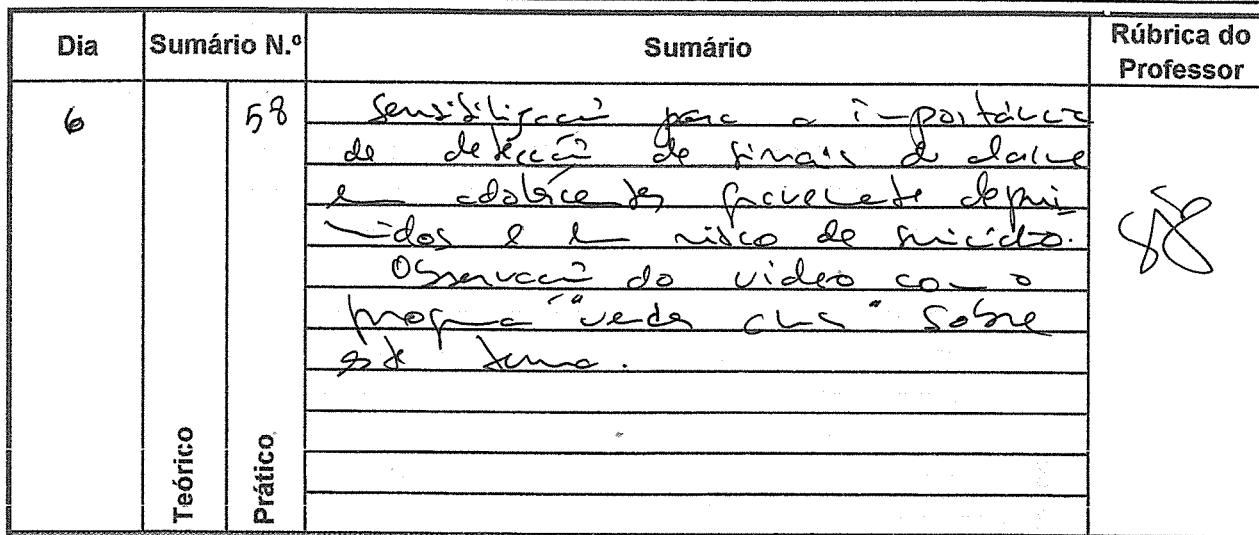 Dia Sumário N.º Sumário Rúbrica do Professor
6 58 Sensibilização para a importância
de detecção de sinais de alarme
em adolescentes gravemente depri-
midos e em risco de suicídio.
Observação do video com o
programa "verdes anos" sobre
este tema.
Teórico Prático